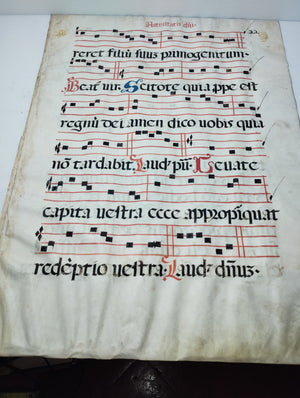 Natiuitatis dñi.
reret filiũ suũ primogentum.
Beat' vir. Scitote quia ꝓpe est
regnũ dei amen dico vobis quia
nõ tardabit. Laud' pũ. Leuate
capita uestra ecce appropĩquat
redẽptio uestra. Laud' dñuȝ.